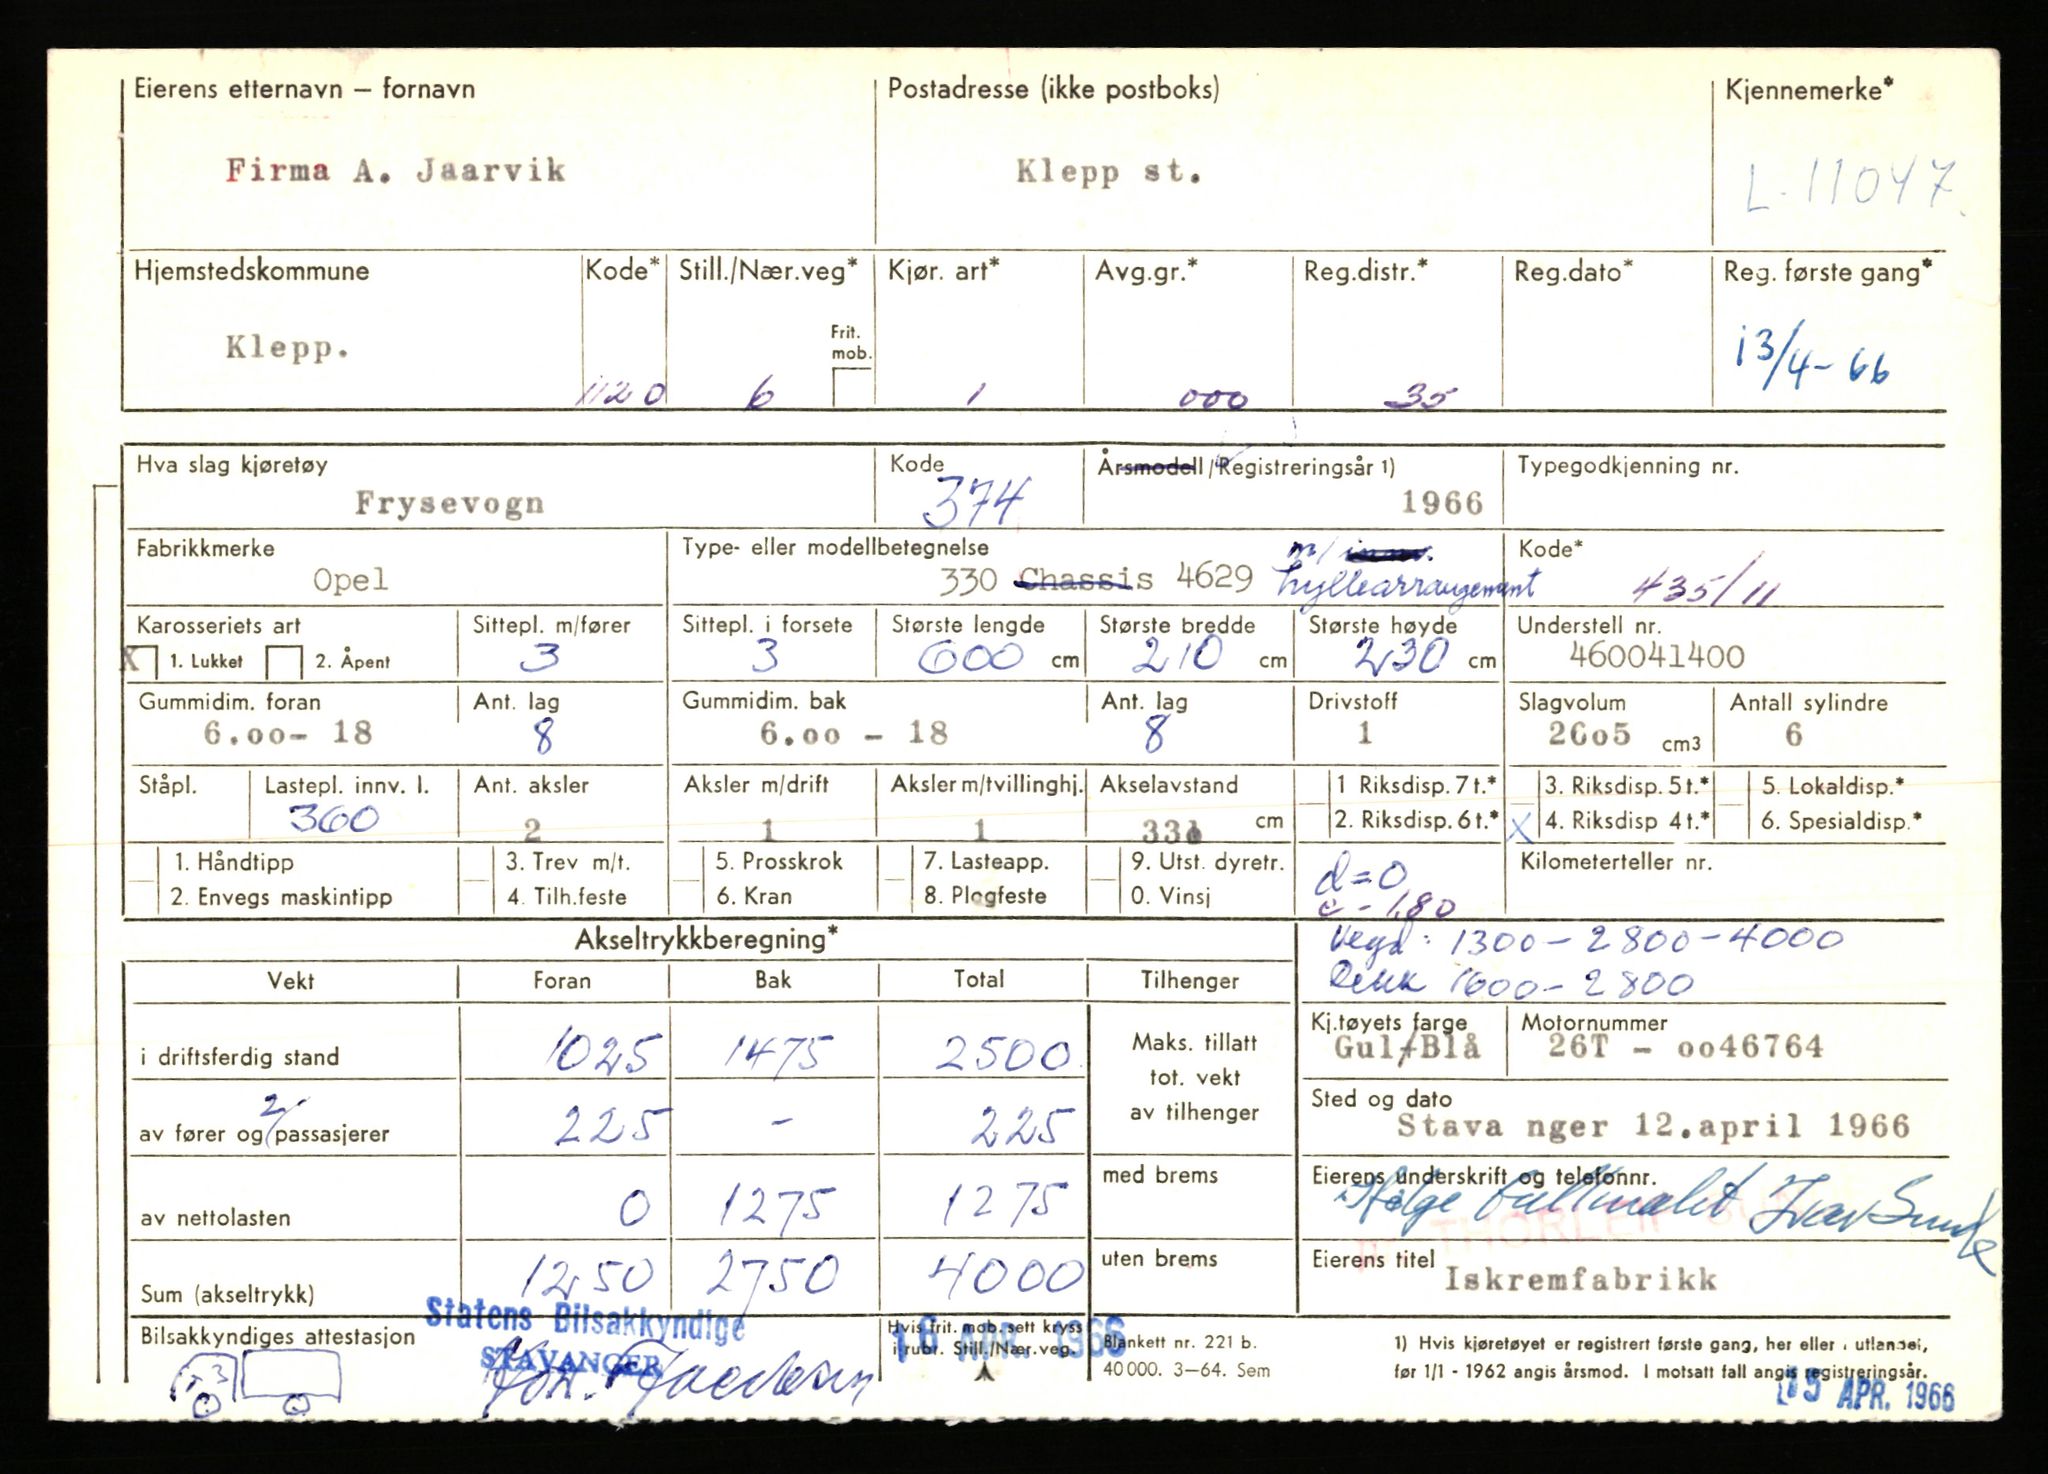 Eierens etternavn – fornavn Postadresse (ikke postboks) Kjennemerke*
Firma A. Jaarvik Klepp st. L-11047.
Hjemstedskommune Kode* Still./Nær.veg* Kjør. art* Avg.gr.* Reg.distr.* Reg.dato* Reg. første gang*
Frit. mob.
Klepp. 1120 6 1 000 35 13/4-66
Hva slag kjøretøy Kode Årsmodell/Registreringsår 1) Typegodkjenning nr.
Frysevogn 374 1966
Fabrikkmerke Type- eller modellbetegnelse Kode*
Opel 330 Chassis 4629 m/ hyllearrangement 435/11
Karosseriets art Sittepl. m/fører Sittepl. i forsete Største lengde Største bredde Største høyde Understell nr.
X 1. Lukket 2. Åpent 3 3 600 cm 210 cm 230 cm 460041400
Gummidim. foran Ant. lag Gummidim. bak Ant. lag Drivstoff Slagvolum Antall sylindre
6.oo- 18 8 6.oo - 18 8 1 26o5 cm3 6
Ståpl. Lastepl. innv. l. Ant. aksler Aksler m/drift Aksler m/tvillinghj. Akselavstand 1 Riksdisp. 7 t.* 3. Riksdisp. 5 t.* 5. Lokaldisp.*
360 2 1 1 cm 2. Riksdisp. 6 t.* X 4. Riksdisp 4 t.* 6. Spesialdisp.*
1. Håndtipp 3. Trev m/t. 5. Prosskrok 7. Lasteapp. 9. Utst. dyretr. Kilometerteller nr.
2. Envegs maskintipp 4. Tilh.feste 6. Kran 8. Plogfeste 0. Vinsj
d=0
c - 1.80
Akseltrykkberegning*
Vegd: 1300-2800-4000
Dekk 1600-2800
Vekt Foran Bak Total Tilhenger
i driftsferdig stand 1025 1475 2500
Maks. tillatt
tot. vekt
av tilhenger
Kj.tøyets farge Motornummer
Gul/Blå 26T - oo46764
av fører og 2/ passasjerer 225 - 225
Sted og dato
Stava nger 12.april 1966
av nettolasten 0 1275 1275 med brems
Eierens underskrift og telefonnr.
THORLEIF
Sum (akseltrykk) 1250 2750 4000 uten brems
Eierens titel
Iskremfabrikk
Bilsakkyndiges attestasjon
Statens Bilsakkyndige
STAVANGER
APR. 1966
Hvis frit. mob. sett kryss
i rubr. Still./Nær.veg.
Blankett nr. 221 b.
40 000. 3–64. Sem
1) Hvis kjøretøyet er registrert første gang, her eller i utlandet,
før 1/1 - 1962 angis årsmod. I motsatt fall angis registreringsår.
15 APR. 1966